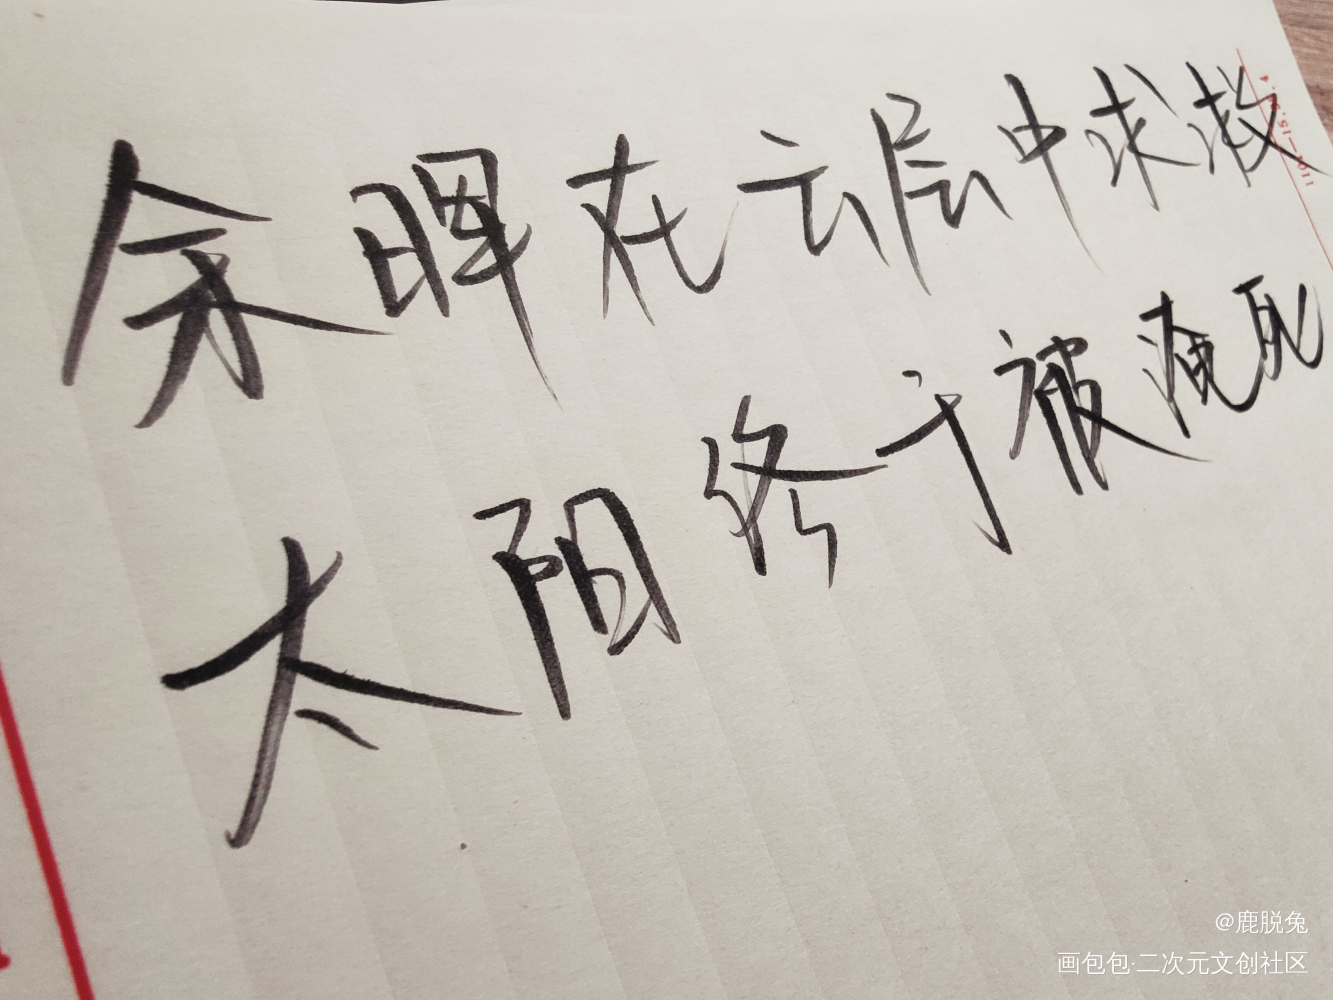 余晖在云层中求救
太阳终于被淹死
@鹿脱兔
画包包·二次元文创社区